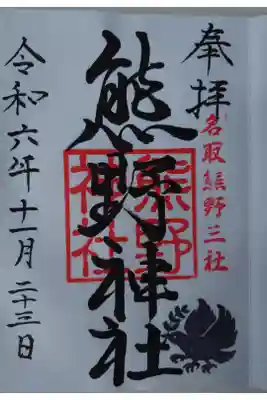 奉拝
名取熊野三社
熊野神社
熊野
神社
令和六年十一月二十三日